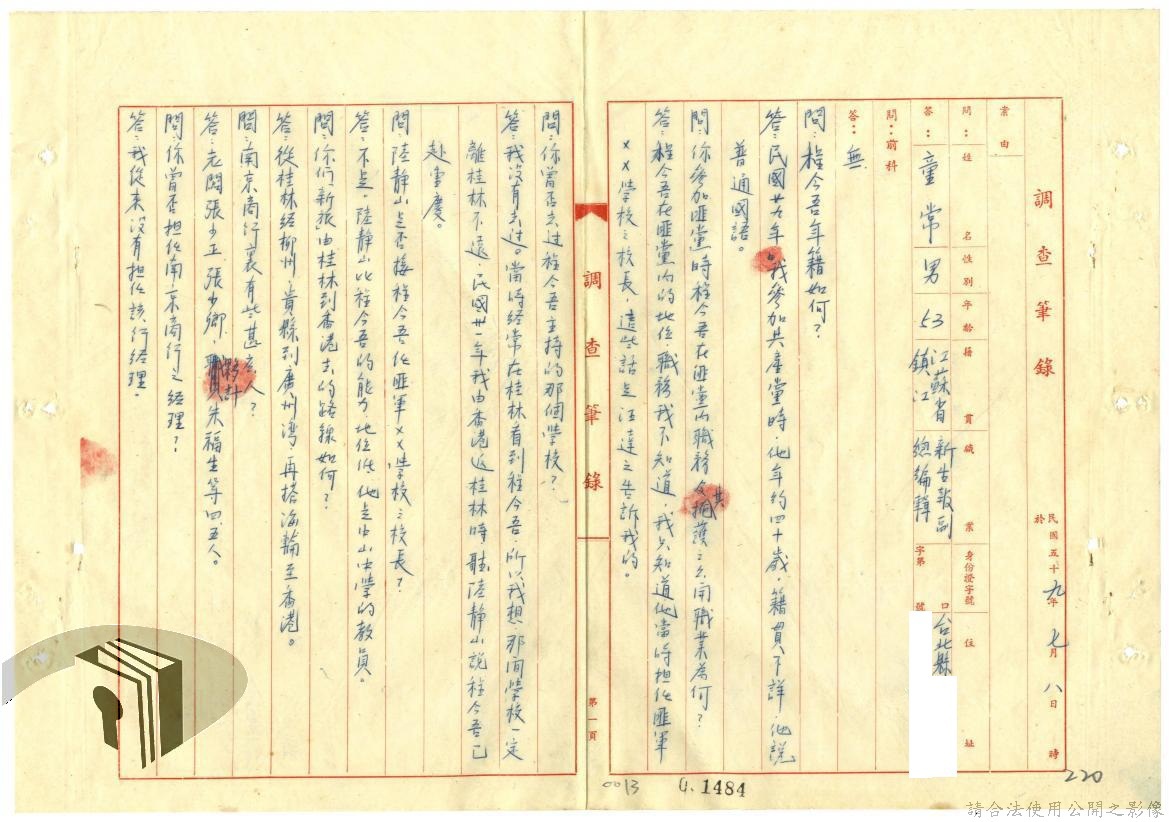 調查筆錄
民國五十九年七月八日 時
於
案由
問：姓名 性別 年齡 籍貫 職業 身份證字號 住址
答：童常 男 53 江蘇省鎮江 新生報副總編輯 字第 號 口 台北縣
問：前科
答：無
問：程今吾年籍如何？
答：民國廿九年我參加共產黨時，他年約四十歲，籍貫不詳，他說
普通國語。
問：你參加匪黨時程今吾在匪黨內職務及其掩護之公開職業為何？
答：程今吾在匪黨內的地位，職務我不知道，我只知道他當時担任匪軍
××學校之校長，這些話是汪達之告訴我的。
調查筆錄
第一頁
問：你曾否去过程今吾主持的那個學校？
答：我沒有去过。當時經常在桂林看到程今吾，所以我想，那间學校一定
離桂林不遠，民國卅一年我由香港返桂林時聽陸静山說程今吾已
赴重慶。
問：陸静山是否接程今吾任匪軍××學校之校長？
答：不是。陸静山比程今吾的能力、地位低，他是中山中學的教員。
問：你们「新旅」由桂林到香港去的路線如何？
答：從桂林經柳州，貴縣到廣州湾，再搭海輪至香港。
問：南京商行裏有些甚広人？
答：老闆張少工，張少卿，夥計朱福生等四、五人。
問：你曾否担任南京商行之經理？
答：我從來沒有担任該行經理。
220
0013
0.1484
請合法使用公開之影像